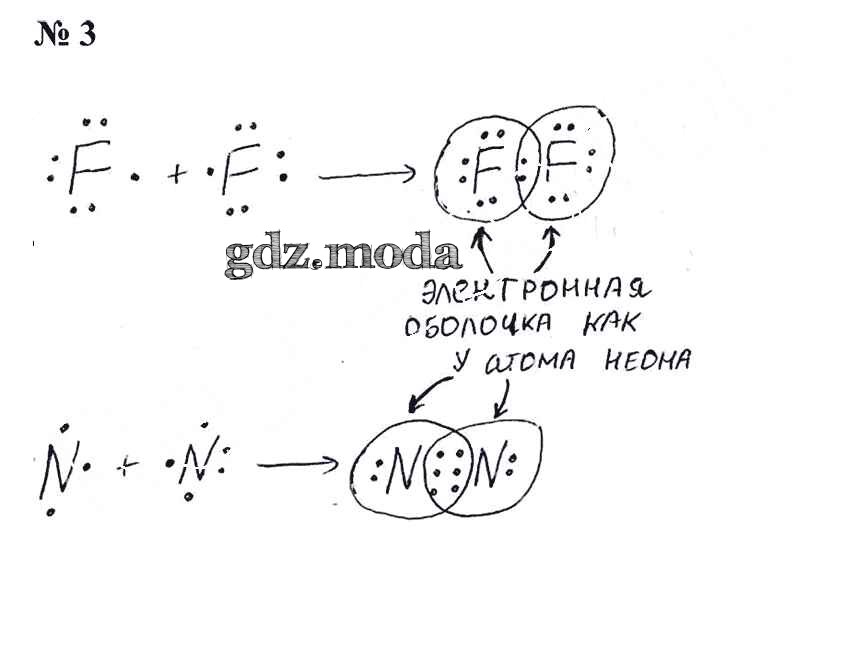 № 3
:F· + ·F: → :F:F:
gdz.moda
ЭЛЕКТРОННАЯ
ОБОЛОЧКА КАК
У АТОМА НЕОНА
N· + ·N: → :N⋮⋮N: